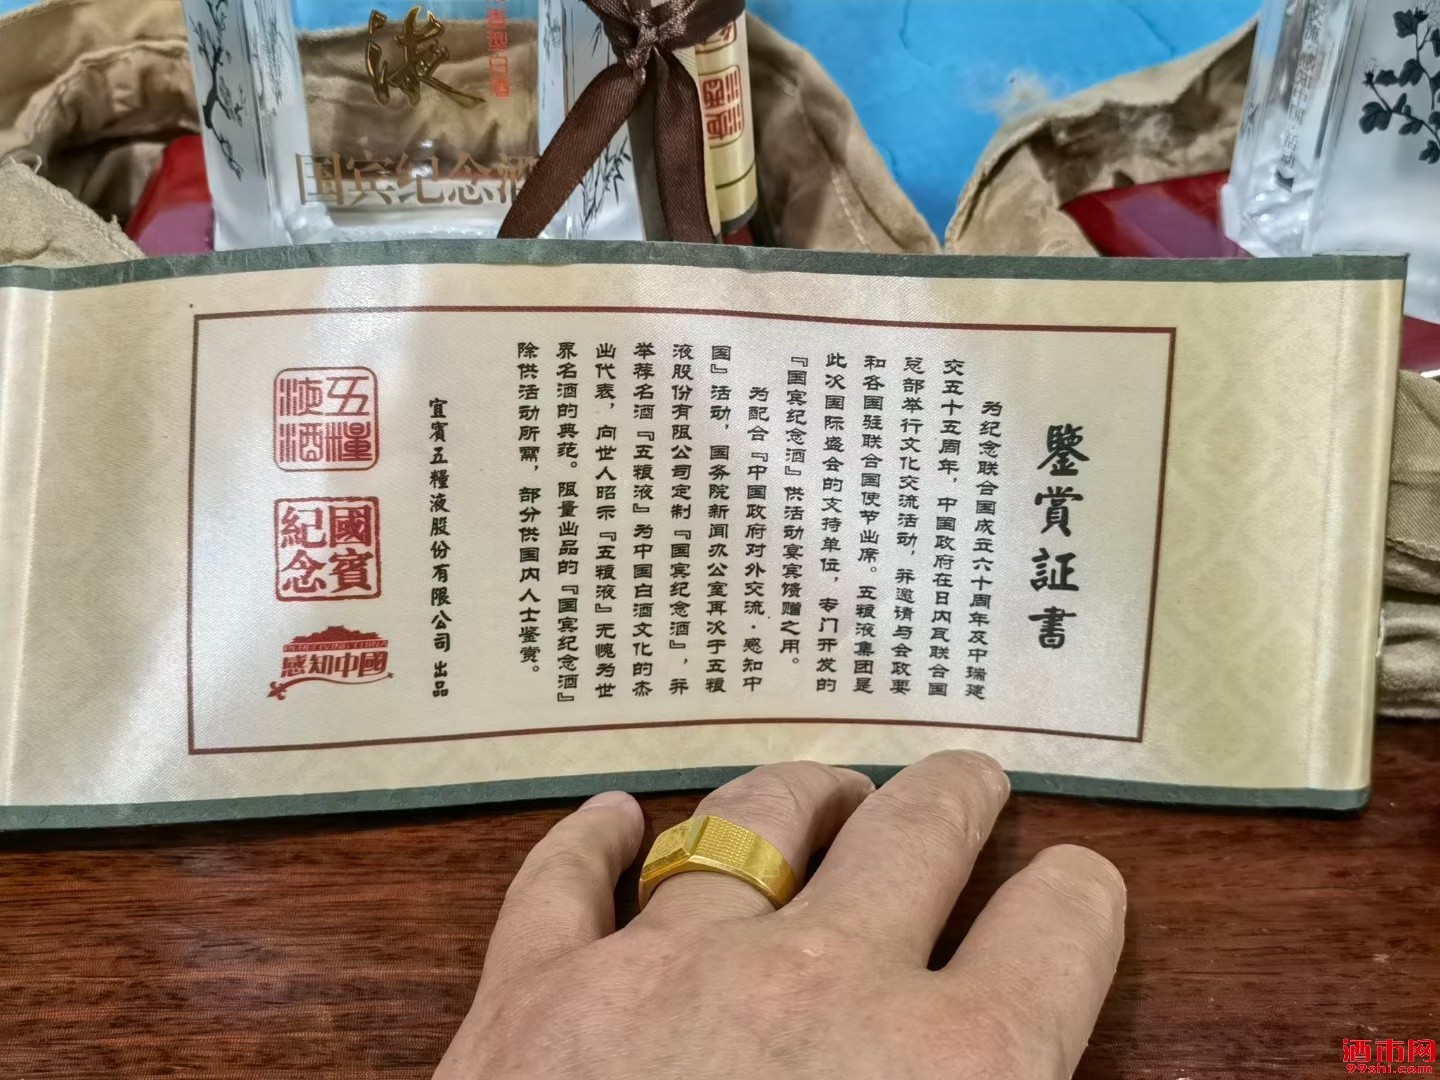 鑒赏証書
为纪念联合国成立六十周年及中瑞建
交五十五周年，中国政府在日内瓦联合国
总部举行文化交流活动，并邀请与会政要
和各国驻联合国使节出席。五粮液集团是
此次国际盛会的支持单位，专门开发的
『国宾纪念酒』供活动宴宾馈赠之用。
为配合『中国政府对外交流·感知中
国』活动，国务院新闻办公室再次于五粮
液股份有限公司定制『国宾纪念酒』，并
举荐名酒『五粮液』为中国白酒文化的杰
出代表，向世人昭示『五粮液』无愧为世
界名酒的典范。限量出品的『国宾纪念酒』
除供活动所需，部分供国内人士鉴赏。
宜賓五糧液股份有限公司 出品
五糧液酒
國賓紀念
感知中國
液
国宾纪念酒
酒市网
99shi.com